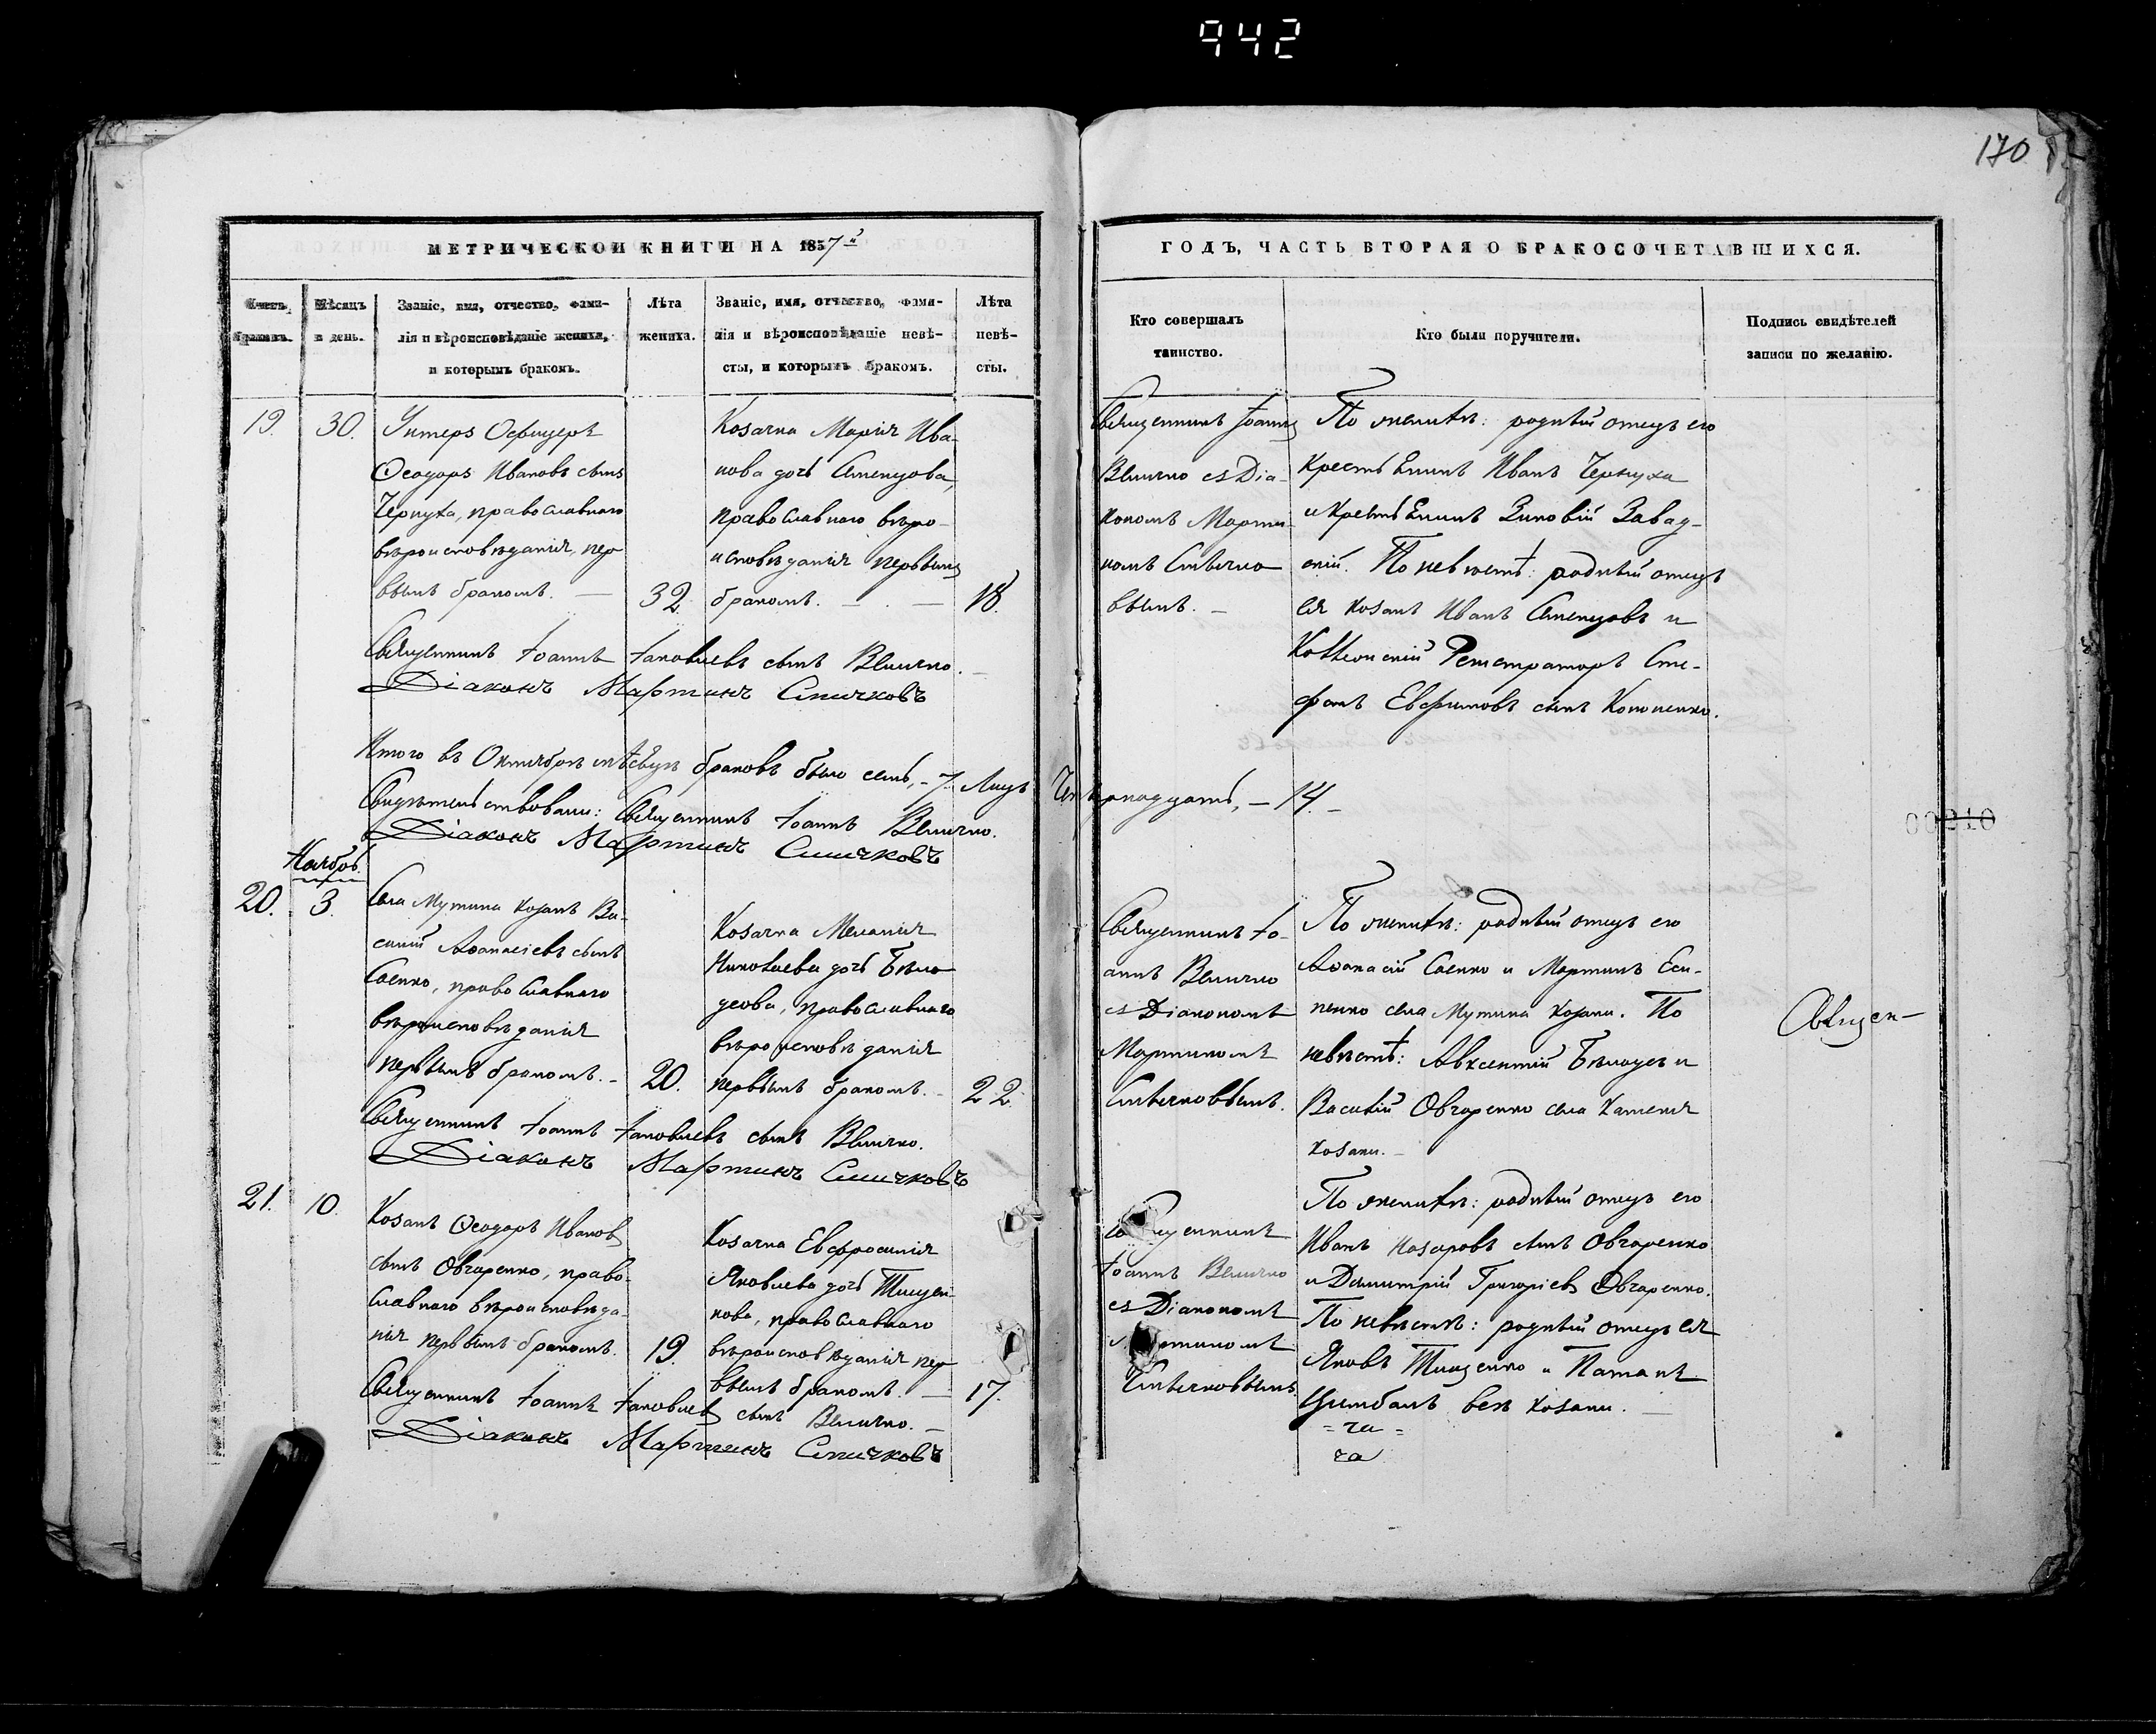 942
170
МЕТРИЧЕСКОЙ КНИГИ НА 1857й
ГОДЪ, ЧАСТЬ ВТОРАЯ О БРАКОСОЧЕТАВШИХСЯ.
Счетъ браковъ.
Мѣсяцъ и день.
Званіе, имя, отчество, фами-
лія и вѣроисповѣданіе жениха,
и которымъ бракомъ.
Лѣта
жениха.
Званіе, имя, отчество, фами-
лія и вѣроисповѣданіе невѣ-
сты, и которымъ бракомъ.
Лѣта
невѣ-
сты.
Кто совершалъ
таинство.
Кто были поручители.
Подпись свидѣтелей
записи по желанію.
19.
30.
Унтеръ Офицеръ
Ѳеодоръ Ивановъ сынъ
Чернуха, православнаго
вѣроисповѣданія, пер
вымъ бракомъ. —
32
Козачка Марія Ива-
нова дочь
православнаго вѣро-
исповѣданія первымъ
бракомъ. —
18.
Священникъ Іоаннъ
Величко съ Діа-
кономъ Марти-
номъ Спичко
вымъ. —
По женихѣ: родный отецъ его
крестьянинъ Иванъ Чернуха
и крестьянинъ Зиновій Завад-
скій. По невѣстѣ: родный отецъ
ея козакъ Иванъ и
Коллежскій Регистраторъ Сте-
фанъ Евфимовъ сынъ Кононенко.
Священникъ Іоаннъ Іаковлевъ сынъ Величко. —
Діаконъ Мартинъ Спичковъ
Итого въ Октябрѣ мѣсяцѣ браковъ было семь, - 7. Лицъ Четырнадцать, — 14. —
Свидѣтельствовали: Священникъ Іоаннъ Величко.
Діаконъ Мартинъ Спичковъ
00210
Ноябрь.
20.
3.
Села Мутина козакъ Ва-
силій Аѳанасіевъ сынъ
Саенко, православнаго
вѣроисповѣданія
первымъ бракомъ. -
20.
Козачка Меланія
Николаева дочь Бѣло
усова, православнаго
вѣроисповѣданія
первымъ бракомъ. -
22
Священникъ Іо-
аннъ Величко
съ Діакономъ
Мартиномъ
Спичковымъ.
По женихѣ: родный отецъ его
Аѳанасій Саенко и Мартинъ Еси-
пенко села Мутина козаки. По
невѣстѣ: Авксентій Бѣлоусъ и
Василій Овчаренко села Камня
козаки. —
Священ-
Священникъ Іоаннъ Іаковлевъ сынъ Величко.
Діаконъ Мартинъ Спичковъ
21.
10.
Козакъ Ѳеодоръ Ивановъ
сынъ Овчаренко, право-
славнаго вѣроисповѣда-
нія первымъ бракомъ.
19.
Козачка Евфросинія
Яковлева дочь Тищен-
кова, православнаго
вѣроисповѣданія пер
вымъ бракомъ. —
17.
Священникъ
Іоаннъ Величко
съ Діакономъ
Мартиномъ
Спичковымъ.
По женихѣ: родный отецъ его
Иванъ Назаровъ сынъ Овчаренко
и Димитрій Григоріевъ Овчаренко.
По невѣстѣ: родный отецъ ея
Яковъ Тищенко и Потапъ
Цимбалъ всѣ козаки. —
Священникъ Іоаннъ Іаковлевъ сынъ Величко. —
Діаконъ Мартинъ Спичковъ